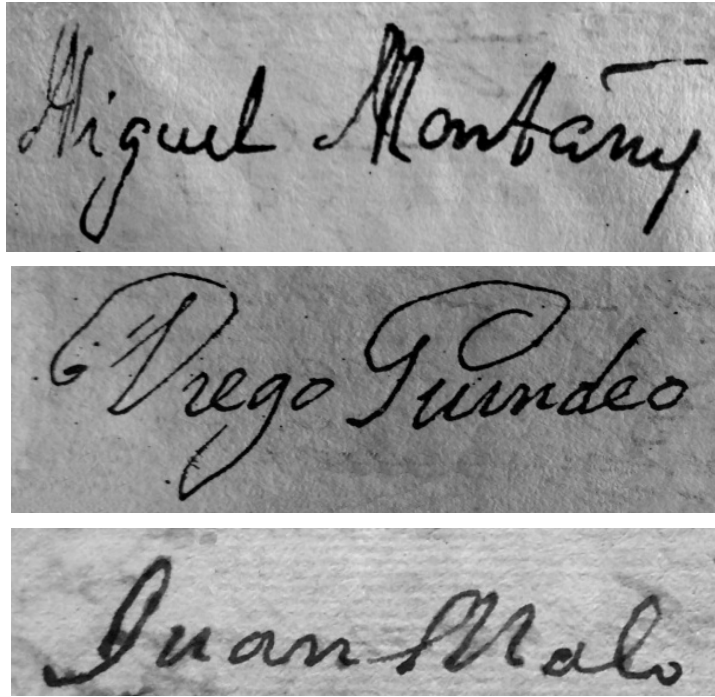 Miguel Montañy
Diego Guindeo
Juan Malo